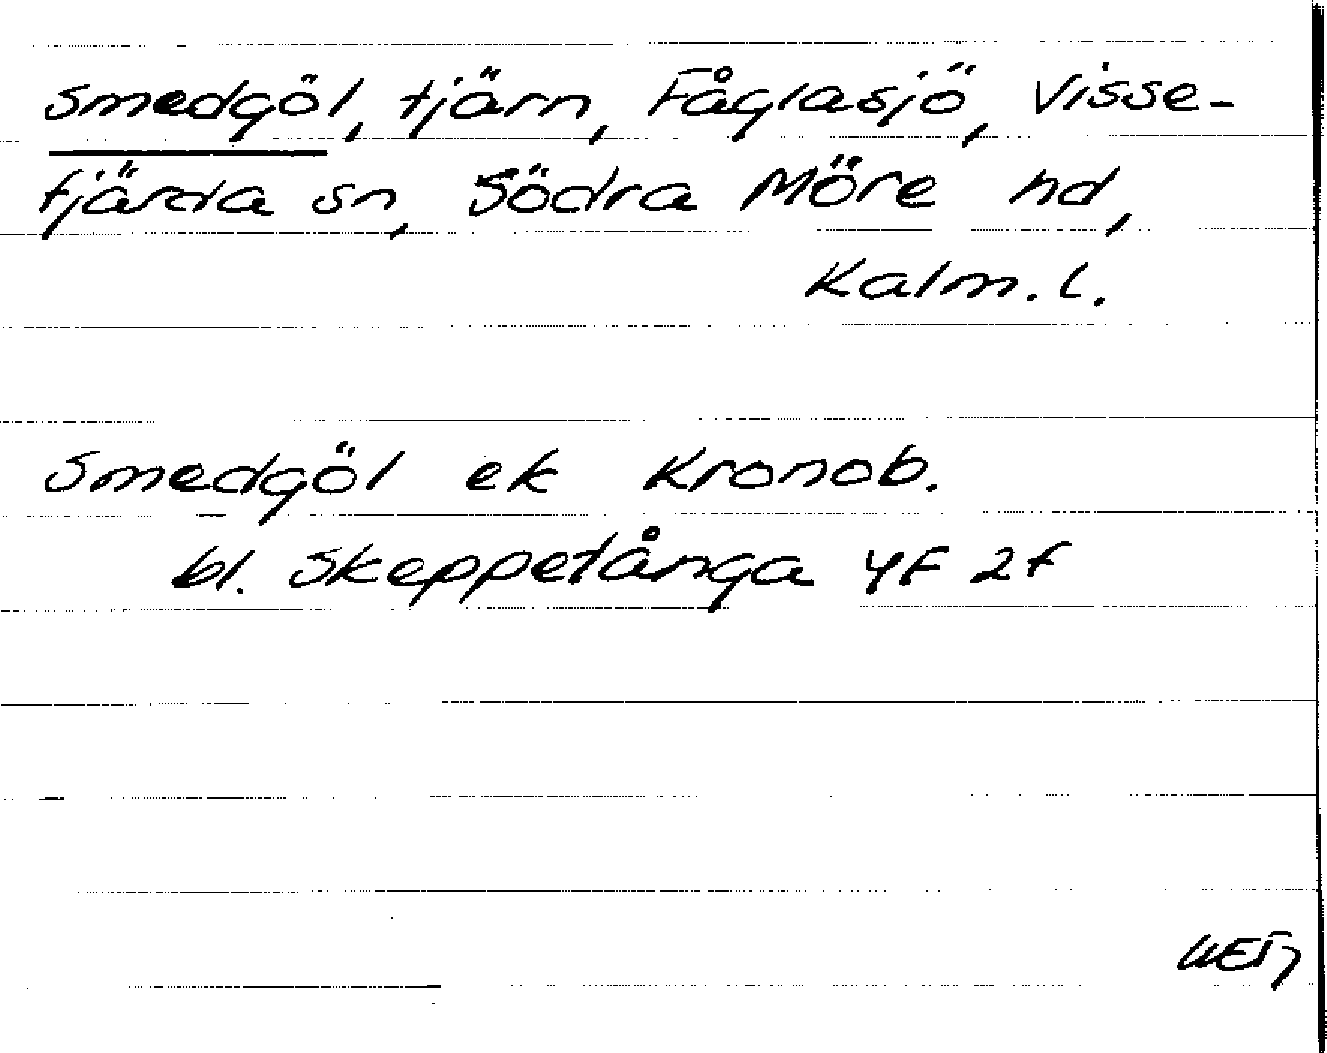 Smedgöl, tjärn, Fåglasjö, Visse-
fjärda sn, Södra Möre hd,
Kalm. l.
Smedgöl ek Kronob.
bl. Skeppetånga 4F 2f